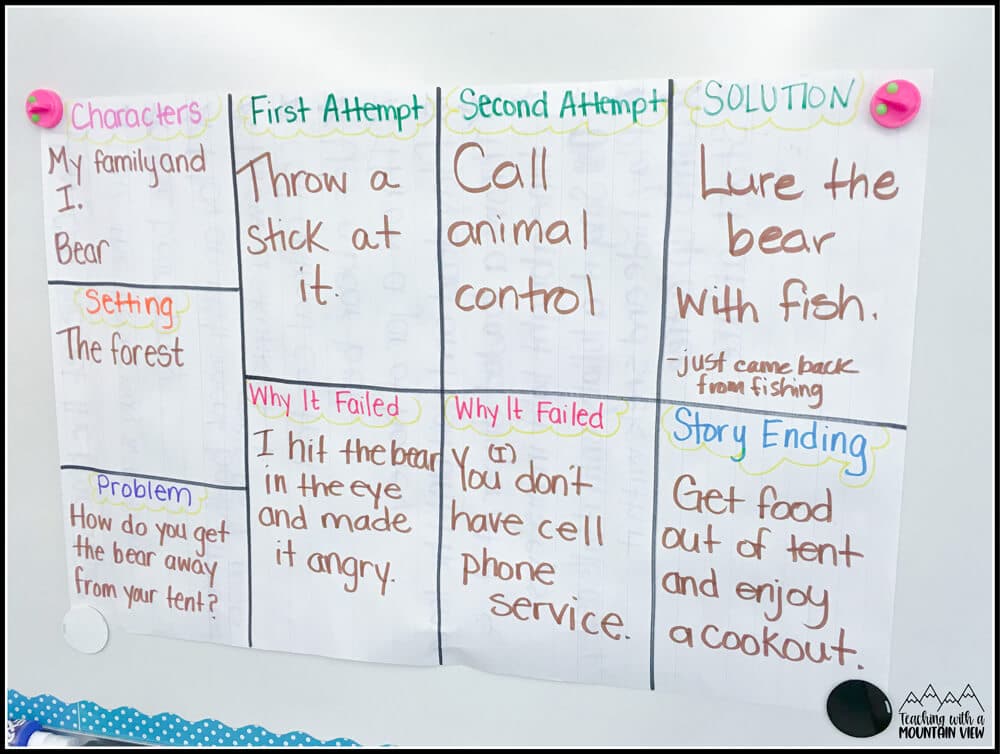 Characters
My family and
I.
Bear
Setting
The forest
Problem
How do you get
the bear away
from your tent?
First Attempt
Throw a
stick at
it.
Why It Failed
I hit the bear
in the eye
and made
it angry.
Second Attempt
Call
animal
control
Why It Failed
(I)
You don't
have cell
phone
service.
SOLUTION
Lure the
bear
with fish.
-just came back
from fishing
Story Ending
Get food
out of tent
and enjoy
a cookout.
Teaching with a
MOUNTAIN VIEW